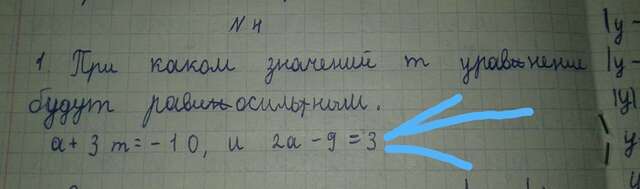 N 4
1. При каком значений m уравнение
будут равносильным.
a + 3m = -10, и 2a - 9 = 3
|y -
|y -
|y|
y -